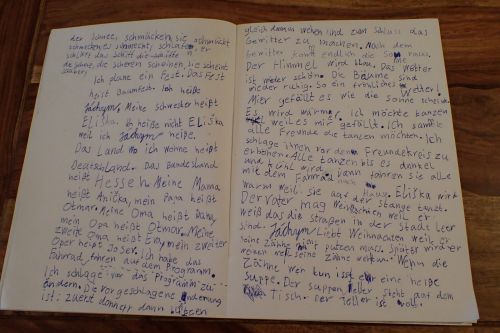 der Schmerz, schmücken, sie schmückt
schmecken, es schmeckt, schlafen, er
schläft das Schiff die Schiffe
die Sonne, die scheinen, die scheint
Ich plane ein Fest. Das Fest
heißt Baumfest. Ich heiße
Jáchym. Meine Schwester heißt
Eliška. Ich heiße nicht Eliška
weil ich Jáchym heiße.
Das Land wo ich wohne heißt
Deutschland. Das Bundesland
heißt Hessen. Meine Mama
heißt Anička, mein Papa heißt
Otmar. Meine Oma heißt Dany,
mein Opa heißt Otmar. Meine
zweite Oma heißt Emy mein zweiter
Oper heißt Josef. Ich habe das
Fahrad fahren auf dem Programm.
Ich schlage vor das Programm zu
ändern. Die vorgeschlagene Änderung
ist: zuerst donnern dann
gleich darauf wehen und zum Schluss das
Gewitter zu machen. Nach dem
Gewitter kommt endlich die Sonne raus.
Der Himmel wird blau. Das Wetter
ist wieder schön. Die Bäume sind
wieder ruhig. So ein fröhliches Wetter!
Mier gefällt es wie die Sonne scheint.
Es wird wärmer. Ich möchte tanzen
weil es mir gefällt. Ich samle
alle Freunde die tanzen möchten. Ich
schlage ihnen vor den Freundekreis zu
erhöhen. Alle tanzen bis es dunkel
und kühl wird. Dann fahren sie alle
mit dem Fahrrad nach Hause
warm weil sie auf der Stange tanzt.
Der Vater mag Weihnachten weil er
weiß das die Straßen in der Stadt leer
sind. Jáchym liebt Weihnachten weil er
seine Zähne nicht putzen muss. Später wird er
weinen weil seine Zähne wehtun. Wenn die
Zähne weh tun isst er eine heiße
Suppe. Der Suppenteller steht auf dem
Tisch. Der Teller ist voll.